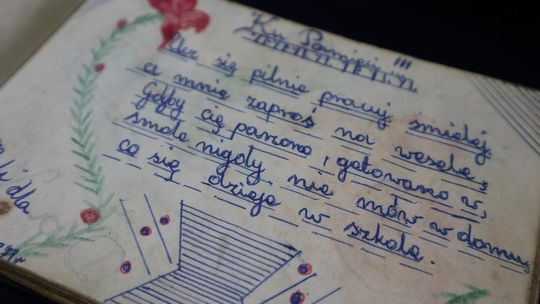 Ku Pamięci !!!
Ucz się pilnie pracuj śmielej
a mnie zaproś na wesele,
Gdyby cię parzono, gotowano w,
smole nigdy nie mów w domu,
co się dzieje w szkole.
dla